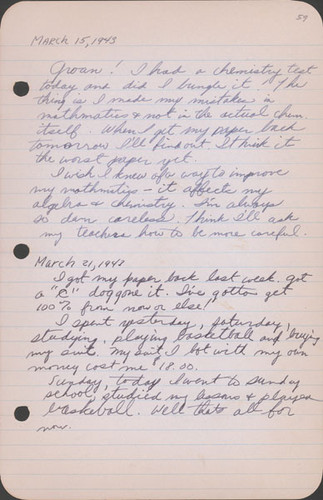 59
MARCH 15, 1943
Groan! I had a chemistry test
today and did I bungle it. The
thing is I made my mistakes in
mathmatics & not in the actual chem.
itself. When I get my paper back
tomorrow I'll find out. I think it
the worst paper yet.
I wish I knew of a way to improve
my mathmitics - it affects my
algebra & chemistry. I'm always
so darn careless. Think I'll ask
my teachers how to be more careful.
March 21, 1943
I got my paper back last week. got
a "C" doggone it. I've gotta get
100% from now on or else!
I spent yesterday, Saturday,
studying, playing basketball and buying
my suit. My suit I bot with my own
money cost me $18.00.
Sunday, today I went to Sunday
school, studied my lessons & played
basketball. Well thats all for
now.